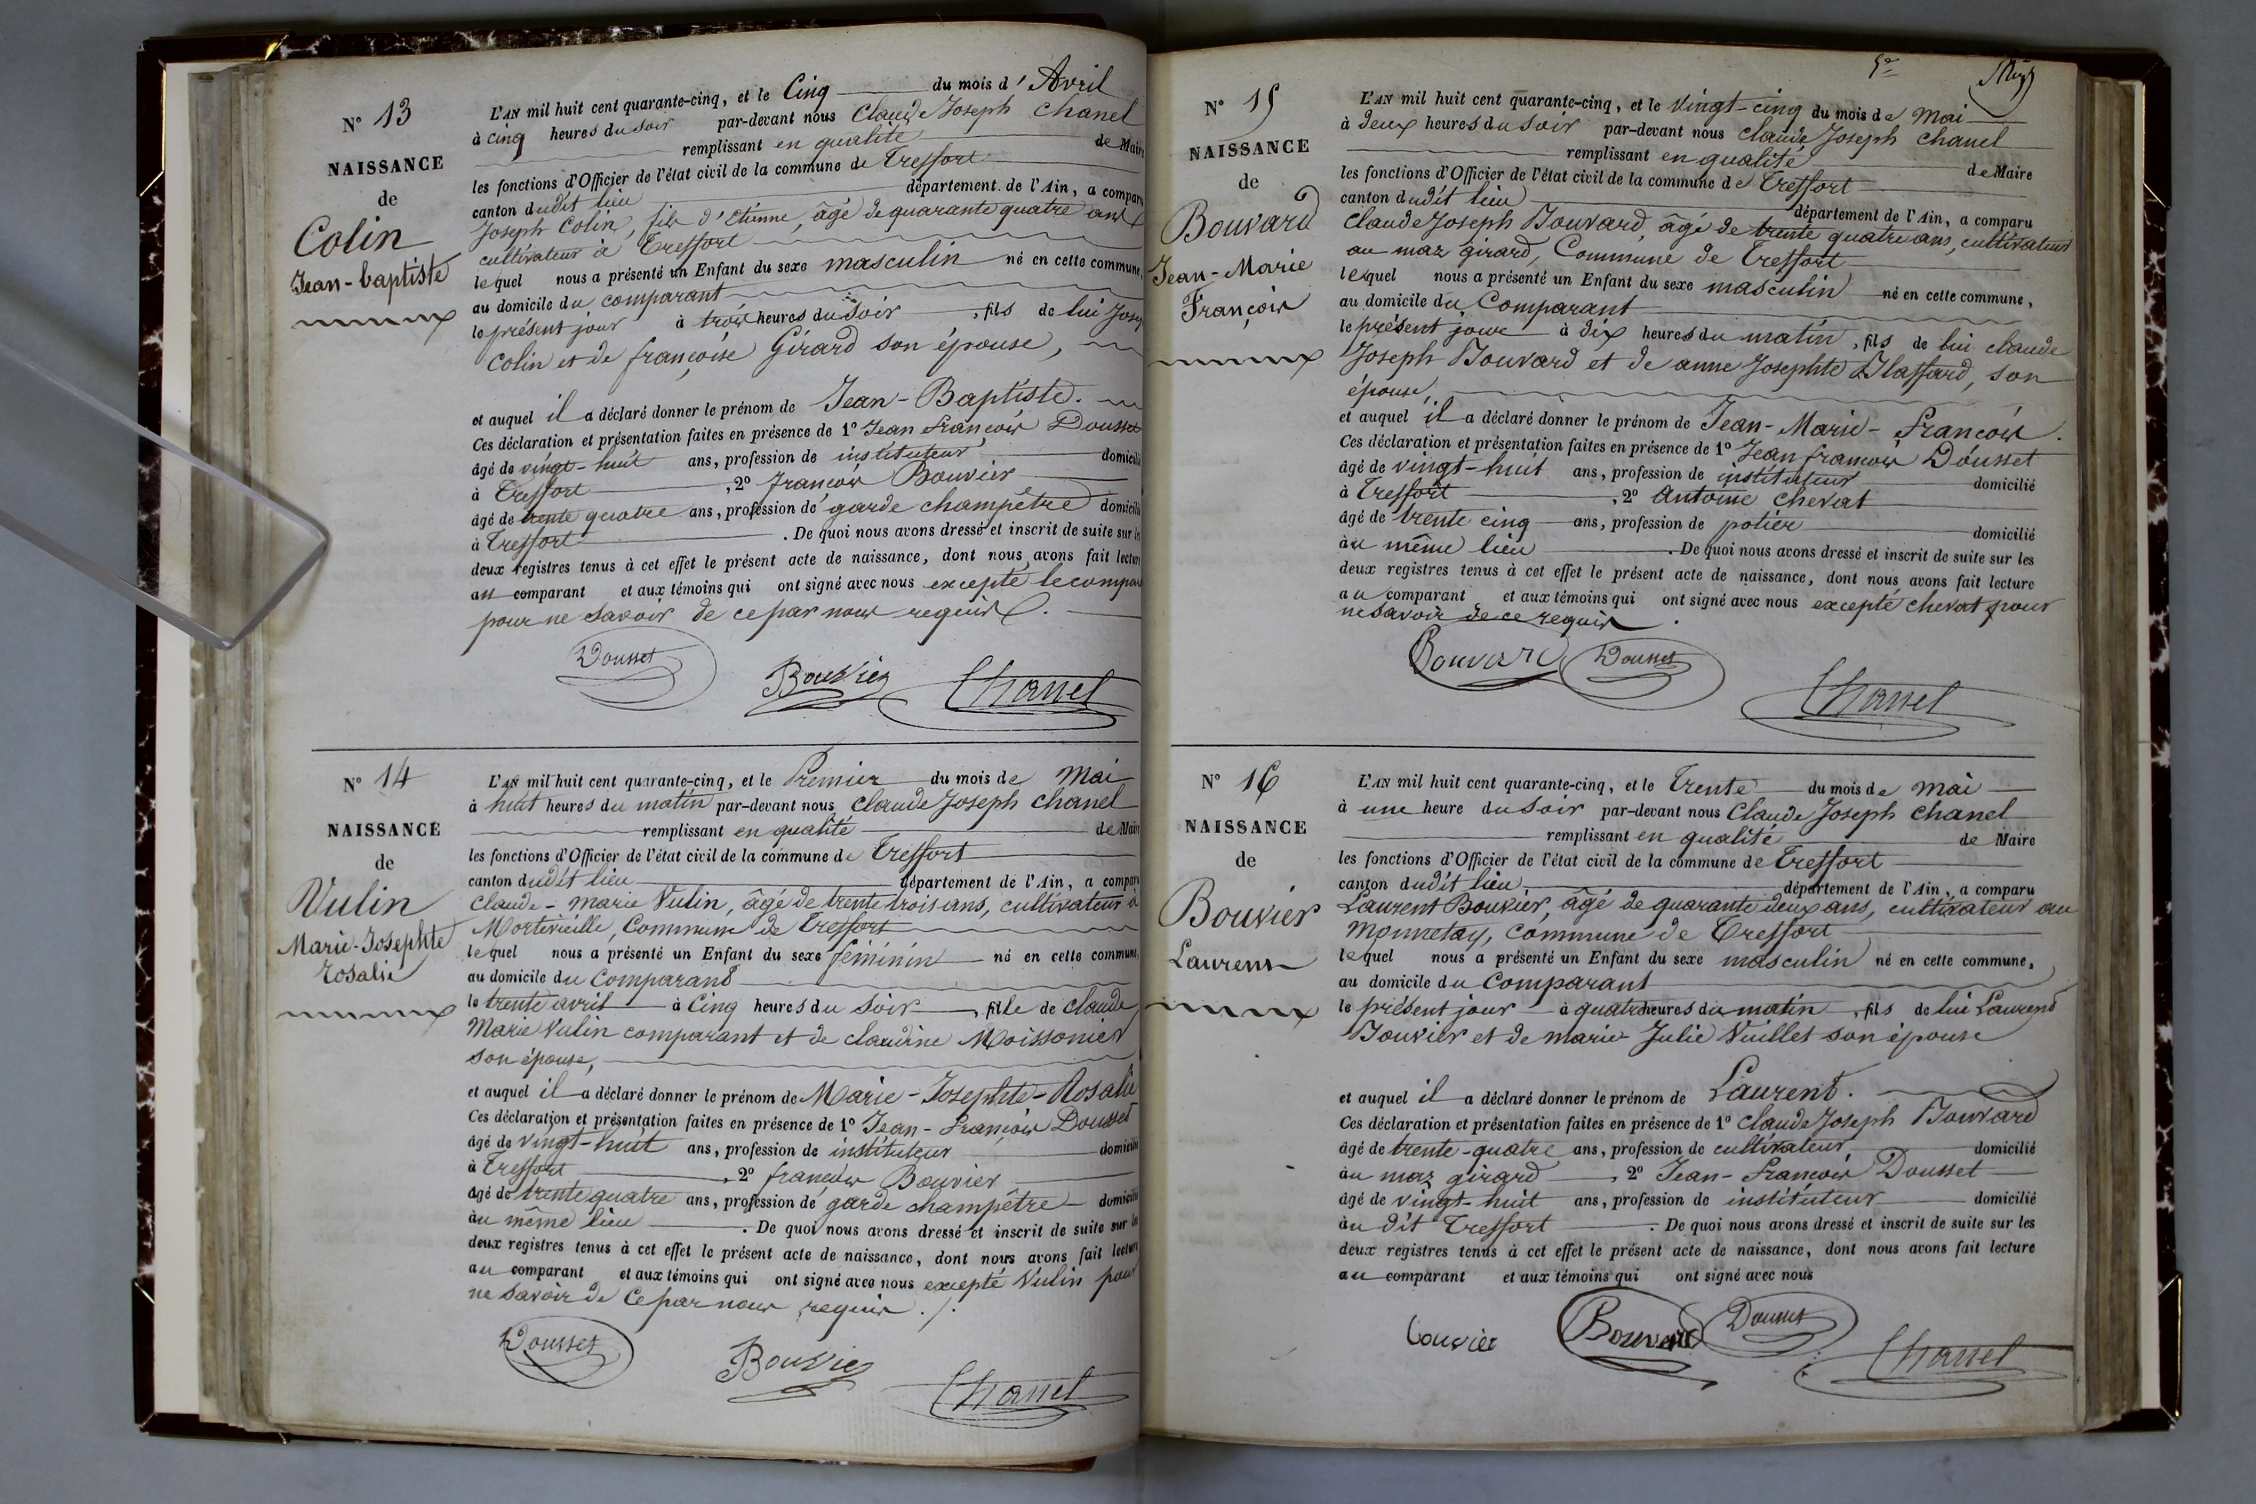 N° 13
NAISSANCE
de
Colin
Jean-baptiste
L'AN mil huit cent quarante-cinq, et le Cinq du mois d'Avril
à cinq heures du soir par-devant nous Claude Joseph Chanel
remplissant en qualité de Maire
les fonctions d'Officier de l'état civil de la commune de Treffort
canton dudit lieu département de l'Ain, a comparu
Joseph Colin, fils d'Etienne, âgé de quarante quatre ans
cultivateur à Treffort
lequel nous a présenté un Enfant du sexe masculin né en cette commune,
au domicile du comparant
le présent jour à trois heures du soir, fils de lui Josep
Colin et de françoise Girard son épouse,
et auquel il a déclaré donner le prénom de Jean-Baptiste.
Ces déclaration et présentation faites en présence de 1° Jean françois Dousset
âgé de vingt-huit ans, profession de instituteur domicilié
à Treffort, 2° françois Bouvier
âgé de trente quatre ans, profession de garde champêtre domicilié
à Treffort. De quoi nous avons dressé et inscrit de suite sur les
deux registres tenus à cet effet le présent acte de naissance, dont nous avons fait lecture
au comparant et aux témoins qui ont signé avec nous excepté le compara
pour ne savoir de ce par nous requis.
Dousset Bouvier Chanel
N° 14
NAISSANCE
de
Vulin
Marie-Josephte
rosalie
L'AN mil huit cent quarante-cinq, et le Premier du mois de Mai
à huit heures du matin par-devant nous Claude Joseph Chanel
remplissant en qualité de Maire
les fonctions d'Officier de l'état civil de la commune de Treffort
canton dudit lieu département de l'Ain, a comparu
Claude-Marie Vulin, âgé de trente trois ans, cultivateur à
Mortevieille, Commune de Treffort
lequel nous a présenté un Enfant du sexe féminin né en cette commune,
au domicile du Comparant
le trente avril à Cinq heures du soir, fille de Claude
Marie Vulin comparant et de claudine Moissonier
son épouse,
et auquel il a déclaré donner le prénom de Marie-Josephte-Rosalie
Ces déclaration et présentation faites en présence de 1° Jean-françois Dousset
âgé de vingt-huit ans, profession de instituteur domicilié
à Treffort, 2° françois Bouvier
âgé de trente quatre ans, profession de garde champêtre domicilié
au même lieu. De quoi nous avons dressé et inscrit de suite sur les
deux registres tenus à cet effet le présent acte de naissance, dont nous avons fait lecture
au comparant et aux témoins qui ont signé avec nous excepté Vulin pour
ne savoir de ce par nous requis.
Dousset Bouvier Chanel
5e
N° 15
NAISSANCE
de
Bouvard
Jean-Marie
François
L'AN mil huit cent quarante-cinq, et le vingt-cinq du mois de Mai
à deux heures du soir par-devant nous Claude Joseph Chanel
remplissant en qualité de Maire
les fonctions d'Officier de l'état civil de la commune de Treffort
canton dudit lieu département de l'Ain, a comparu
Claude Joseph Bouvard, âgé de trente quatre ans, cultivateur
au maz girard, Commune de Treffort
lequel nous a présenté un Enfant du sexe masculin né en cette commune,
au domicile du Comparant
le présent jour à dix heures du matin, fils de lui claude
Joseph Bouvard et de anne Josephte Blaffard, son
épouse,
et auquel il a déclaré donner le prénom de Jean-Marie-françois.
Ces déclaration et présentation faites en présence de 1° Jean françois Dousset
âgé de vingt-huit ans, profession de instituteur domicilié
à Treffort, 2° Antoine Chevat
âgé de trente cinq ans, profession de potier domicilié
au même lieu. De quoi nous avons dressé et inscrit de suite sur les
deux registres tenus à cet effet le présent acte de naissance, dont nous avons fait lecture
au comparant et aux témoins qui ont signé avec nous excepté chevat pour
ne savoir de ce requis.
Bouvard Dousset Chanel
N° 16
NAISSANCE
de
Bouvier
Laurent
L'AN mil huit cent quarante-cinq, et le Trente du mois de Mai
à une heure du soir par-devant nous Claude Joseph Chanel
remplissant en qualité de Maire
les fonctions d'Officier de l'état civil de la commune de Treffort
canton dudit lieu département de l'Ain, a comparu
Laurent Bouvier, âgé de quarante deux ans, cultivateur au
Monnetay, commune de Treffort
lequel nous a présenté un Enfant du sexe masculin né en cette commune,
au domicile du Comparant
le présent jour à quatre heures du matin, fils de lui Laurent
Bouvier et de marie Julie Vuillet son épouse
et auquel il a déclaré donner le prénom de Laurent.
Ces déclaration et présentation faites en présence de 1° Claude Joseph Bouvard
âgé de trente-quatre ans, profession de cultivateur domicilié
au maz girard, 2° Jean-françois Dousset
âgé de vingt-huit ans, profession de instituteur domicilié
au dit Treffort. De quoi nous avons dressé et inscrit de suite sur les
deux registres tenus à cet effet le présent acte de naissance, dont nous avons fait lecture
au comparant et aux témoins qui ont signé avec nous
bouvier Bouvard Dousset Chanel